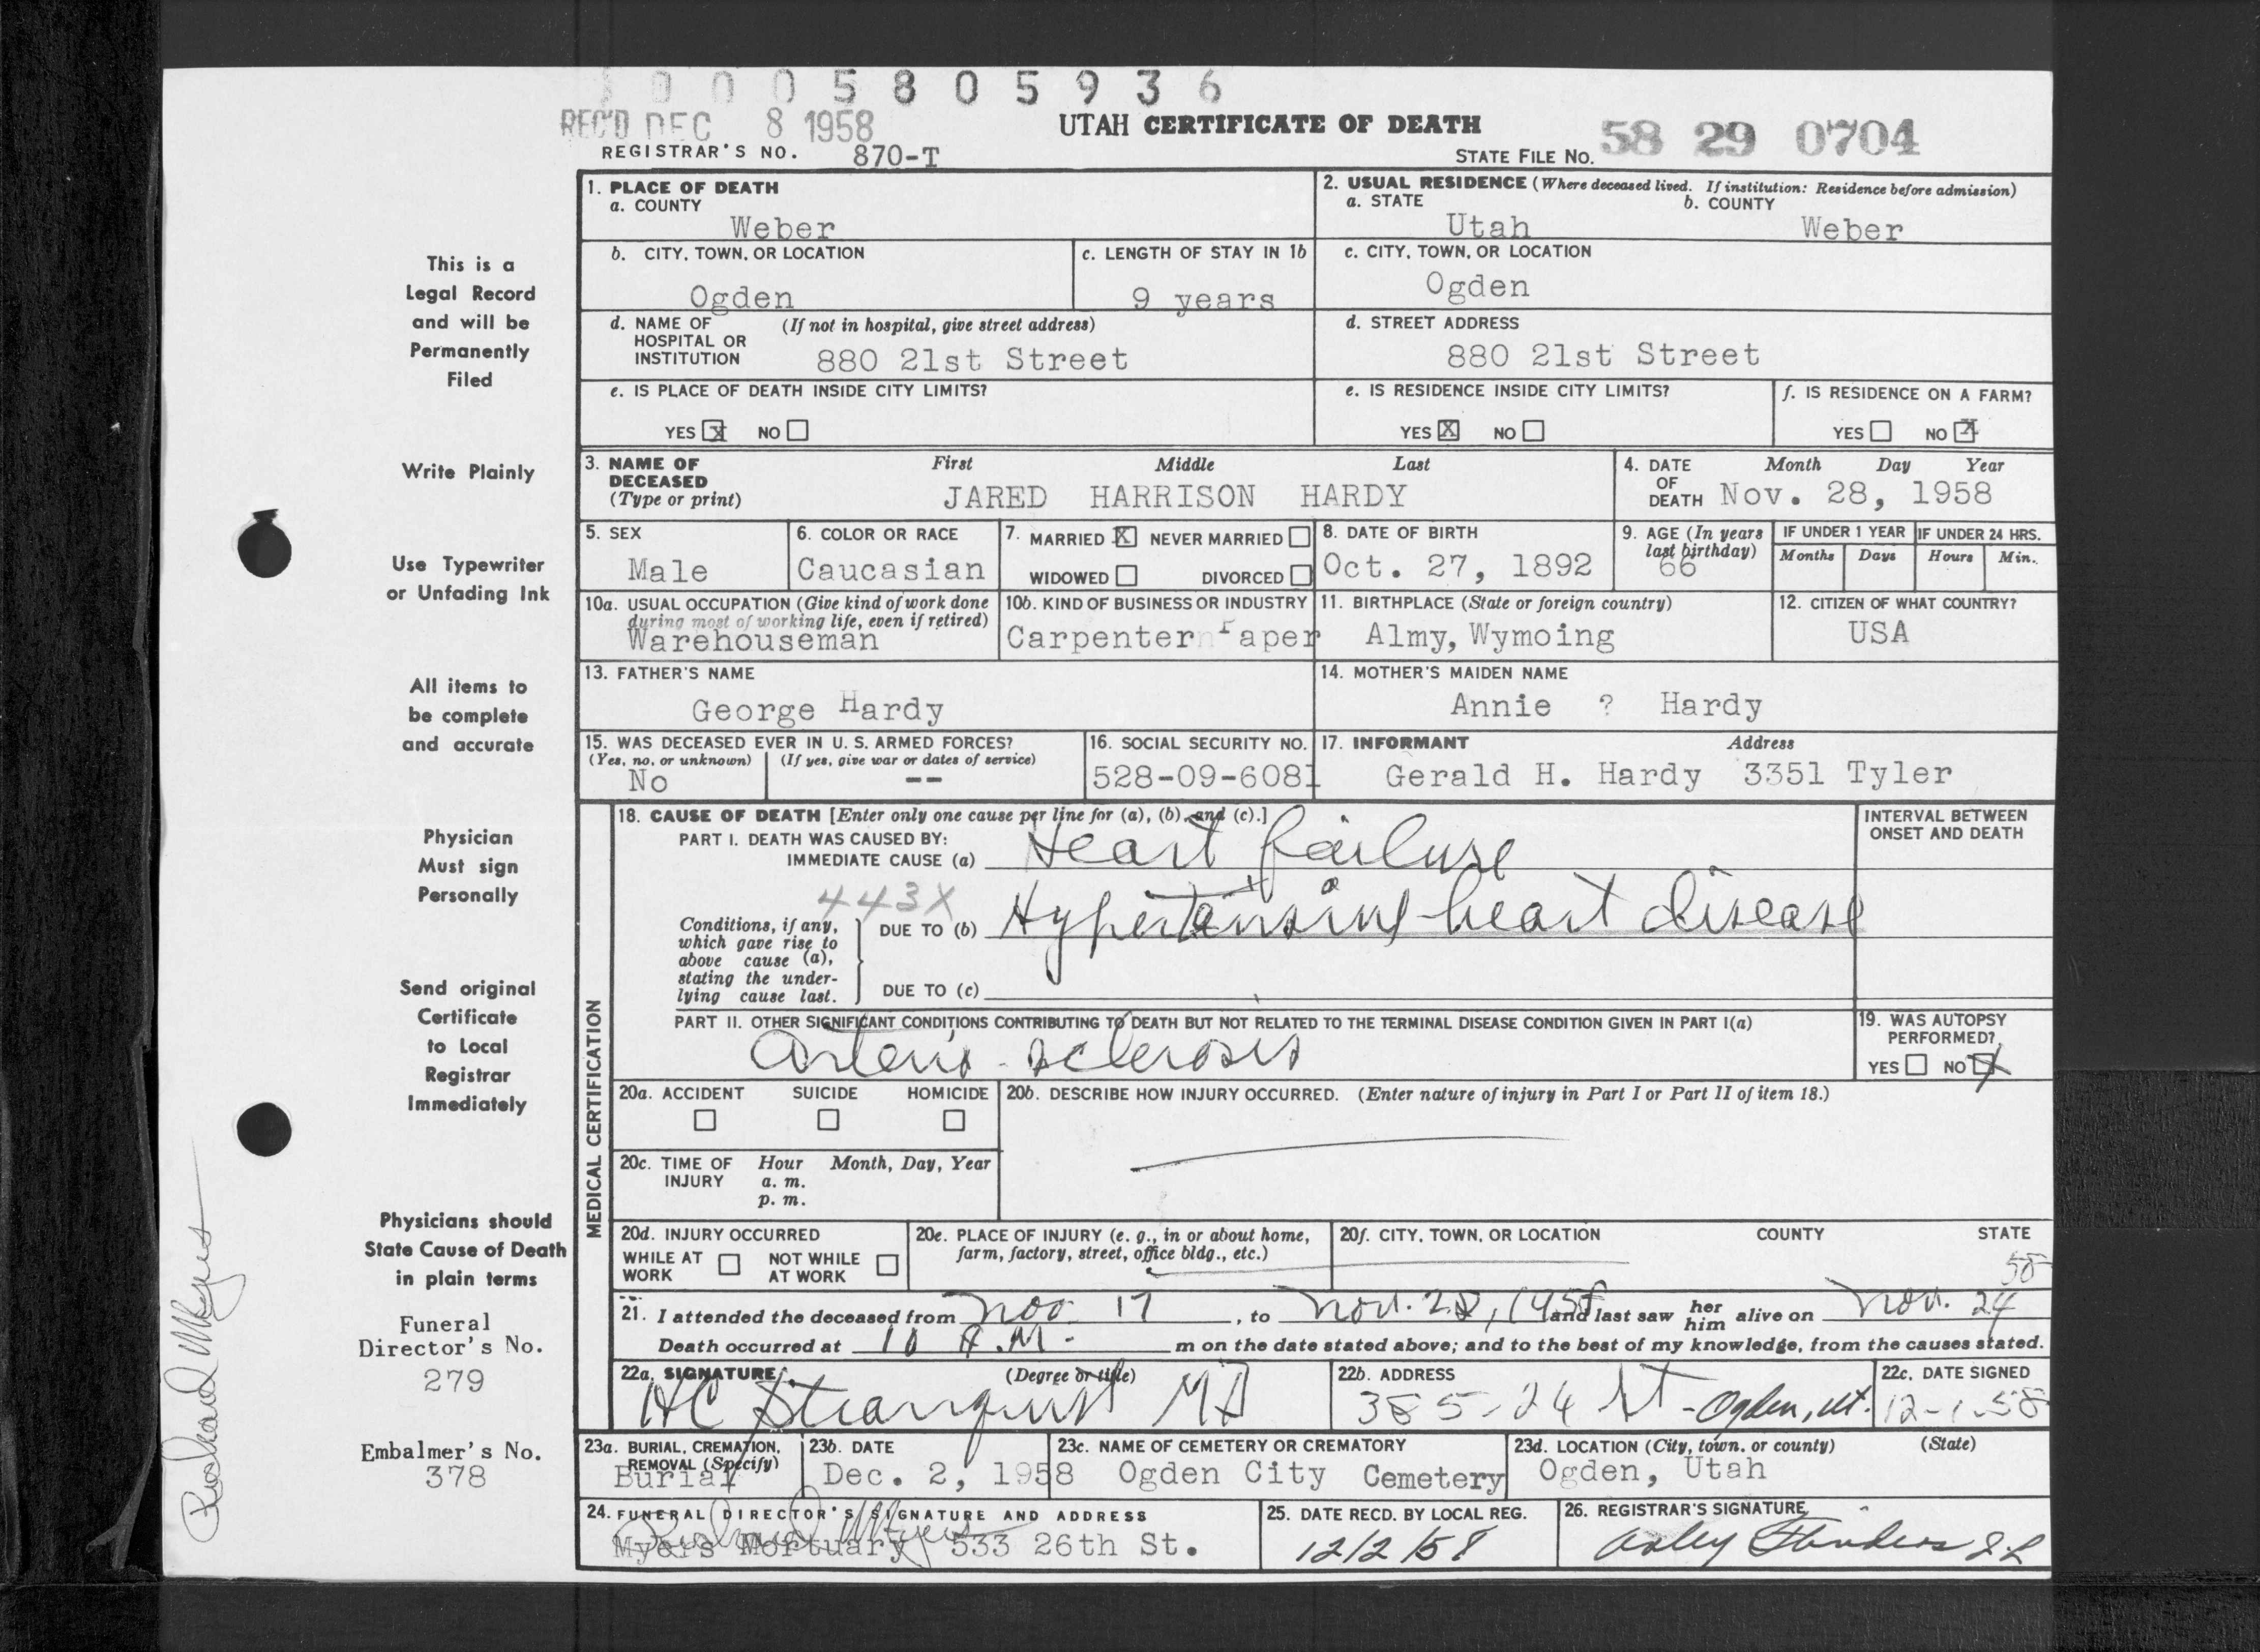 0 0 0 5 8 0 5 9 3 6
REC'D DEC 8 1958
UTAH CERTIFICATE OF DEATH
REGISTRAR'S NO. 870-T
STATE FILE NO. 58 29 0704
This is a
Legal Record
and will be
Permanently
Filed
Write Plainly
Use Typewriter
or Unfading Ink
All items to
be complete
and accurate
Physician
Must sign
Personally
Send original
Certificate
to Local
Registrar
Immediately
Physicians should
State Cause of Death
in plain terms
Funeral
Director's No.
279
Embalmer's No.
378
Richard W Myers
1. PLACE OF DEATH
a. COUNTY
Weber
2. USUAL RESIDENCE (Where deceased lived. If institution: Residence before admission)
a. STATE b. COUNTY
Utah Weber
b. CITY, TOWN, OR LOCATION
Ogden
c. LENGTH OF STAY IN 1b
9 years
c. CITY, TOWN, OR LOCATION
Ogden
d. NAME OF (If not in hospital, give street address)
HOSPITAL OR
INSTITUTION 880 21st Street
d. STREET ADDRESS
880 21st Street
e. IS PLACE OF DEATH INSIDE CITY LIMITS?
YES X NO
e. IS RESIDENCE INSIDE CITY LIMITS?
YES X NO
f. IS RESIDENCE ON A FARM?
YES NO X
3. NAME OF DECEASED (Type or print)
First Middle Last
JARED HARRISON HARDY
4. DATE OF DEATH
Month Day Year
Nov. 28, 1958
5. SEX
Male
6. COLOR OR RACE
Caucasian
7. MARRIED X NEVER MARRIED
WIDOWED DIVORCED
8. DATE OF BIRTH
Oct. 27, 1892
9. AGE (In years
last birthday)
66
IF UNDER 1 YEAR
Months Days
IF UNDER 24 HRS.
Hours Min.
10a. USUAL OCCUPATION (Give kind of work done
during most of working life, even if retired)
Warehouseman
10b. KIND OF BUSINESS OR INDUSTRY
Carpenter Paper
11. BIRTHPLACE (State or foreign country)
Almy, Wymoing
12. CITIZEN OF WHAT COUNTRY?
USA
13. FATHER'S NAME
George Hardy
14. MOTHER'S MAIDEN NAME
Annie ? Hardy
15. WAS DECEASED EVER IN U. S. ARMED FORCES?
(Yes, no, or unknown) (If yes, give war or dates of service)
No --
16. SOCIAL SECURITY NO.
528-09-6081
17. INFORMANT Address
Gerald H. Hardy 3351 Tyler
MEDICAL CERTIFICATION
18. CAUSE OF DEATH [Enter only one cause per line for (a), (b), and (c).]
PART I. DEATH WAS CAUSED BY:
IMMEDIATE CAUSE (a) Heart failure
443X
Conditions, if any,
which gave rise to
above cause (a),
stating the under-
lying cause last.
DUE TO (b) Hypertensive heart disease
DUE TO (c)
INTERVAL BETWEEN
ONSET AND DEATH
PART II. OTHER SIGNIFICANT CONDITIONS CONTRIBUTING TO DEATH BUT NOT RELATED TO THE TERMINAL DISEASE CONDITION GIVEN IN PART I(a)
Arterio-sclerosis
19. WAS AUTOPSY
PERFORMED?
YES NO X
20a. ACCIDENT SUICIDE HOMICIDE
20b. DESCRIBE HOW INJURY OCCURRED. (Enter nature of injury in Part I or Part II of item 18.)
20c. TIME OF INJURY
Hour Month, Day, Year
a. m.
p. m.
20d. INJURY OCCURRED
WHILE AT WORK
NOT WHILE AT WORK
20e. PLACE OF INJURY (e. g., in or about home,
farm, factory, street, office bldg., etc.)
20f. CITY, TOWN, OR LOCATION COUNTY STATE
58
21. I attended the deceased from Nov. 17, to Nov. 28, 1958 and last saw her him alive on Nov. 24
Death occurred at 10 A.M. m on the date stated above; and to the best of my knowledge, from the causes stated.
22a. SIGNATURE (Degree or title)
HC Stranquist MD
22b. ADDRESS
385-24 St - Ogden, Ut.
22c. DATE SIGNED
12-1-58
23a. BURIAL, CREMATION,
REMOVAL (Specify)
Burial
23b. DATE
Dec. 2, 1958
23c. NAME OF CEMETERY OR CREMATORY
Ogden City Cemetery
23d. LOCATION (City, town, or county) (State)
Ogden, Utah
24. FUNERAL DIRECTOR'S SIGNATURE AND ADDRESS
Richard W Myers
Myers Mortuary 533 26th St.
25. DATE RECD. BY LOCAL REG.
12/2/58
26. REGISTRAR'S SIGNATURE